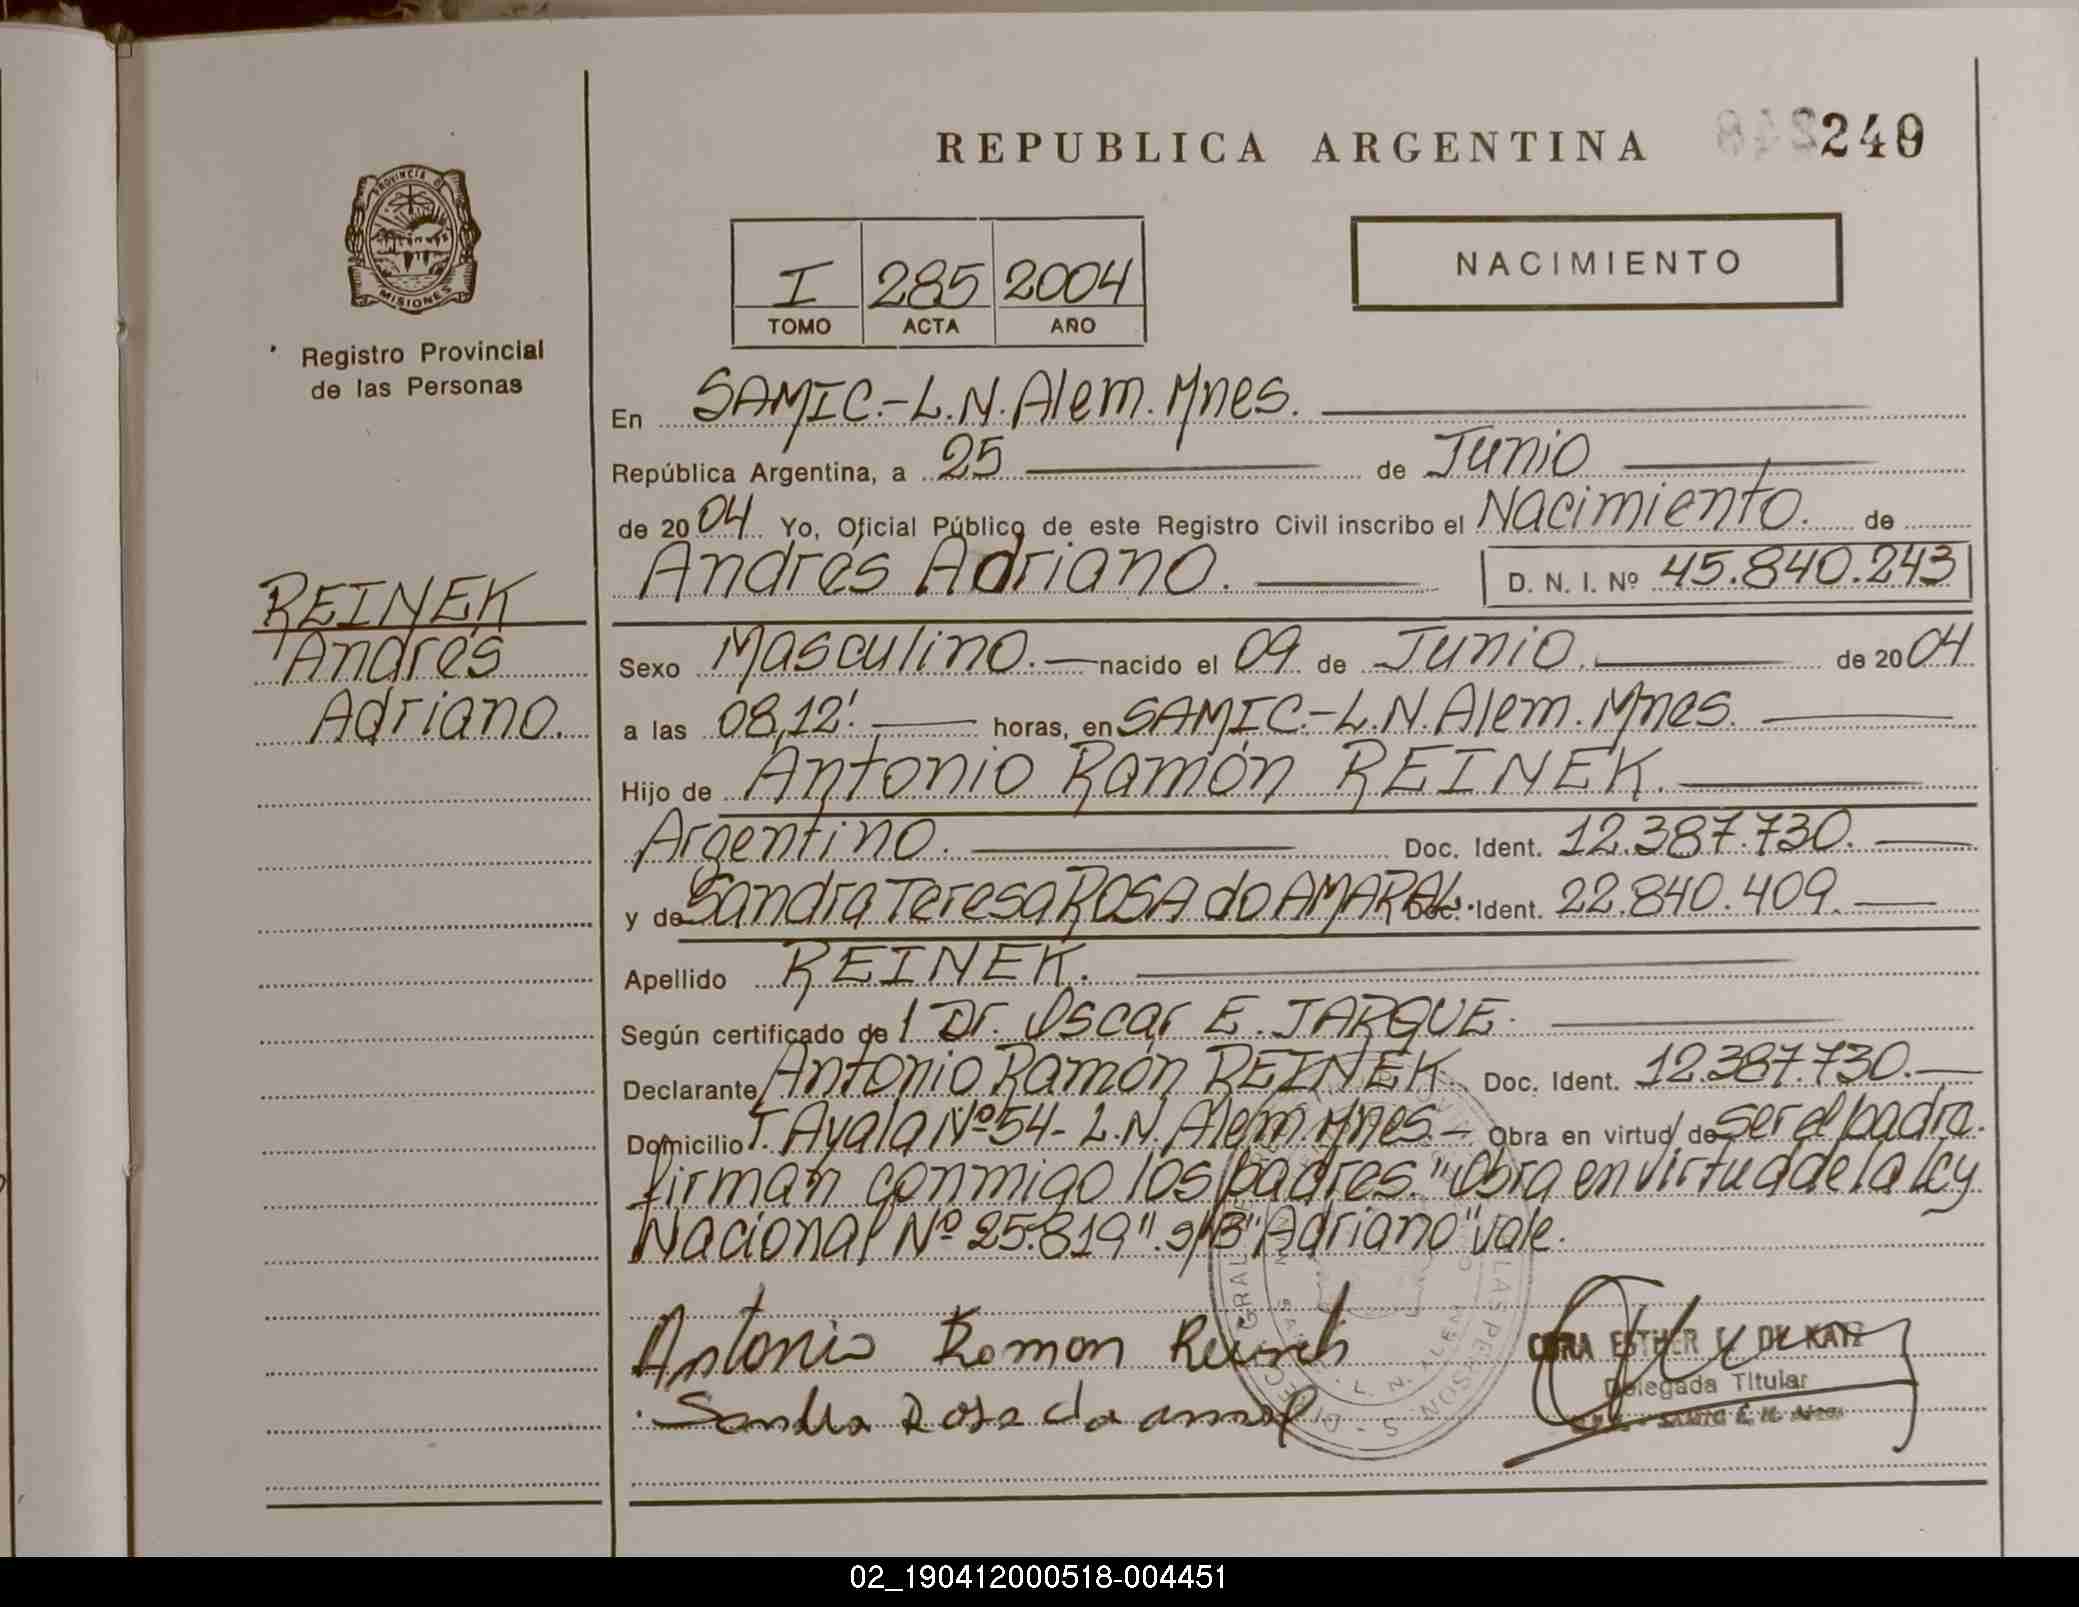 REPUBLICA ARGENTINA
249
PROVINCIA D
MISIONES
Registro Provincial
de las Personas
NACIMIENTO
I 285 2004
TOMO ACTA AÑO
En SAMIC.-L.N.Alem.Mnes.
República Argentina, a 25 de Junio
de 2004 Yo, Oficial Público de este Registro Civil inscribo el Nacimiento. de
Andrés Adriano. D. N. I. Nº 45.840.243
REINEK
Andrés
Adriano.
Sexo Masculino.- nacido el 09 de Junio. de 2004
a las 08,12'. horas, en SAMIC.-L.N.Alem.Mnes.
Hijo de Antonio Ramón REINEK.
Argentino. Doc. Ident. 12.387.730.
y de Sandra Teresa ROSA do AMARAL. Doc. Ident. 22.840.409.
Apellido REINEK.
Según certificado de Dr. Oscar E. JARQUE.
Declarante Antonio Ramón REINEK. Doc. Ident. 12.387.730.
Domicilio T. Ayala Nº54-L.N.Alem.Mnes.- Obra en virtud de ser el padre.
firman conmigo los padres."Obra en virtud de la ley
Nacional Nº 25.819".s/B"Adriano"vale.
Antonio Ramon
Sandra Rosa do amaral
ESTHER DE KATZ
Delegada Titular
02_190412000518-004451